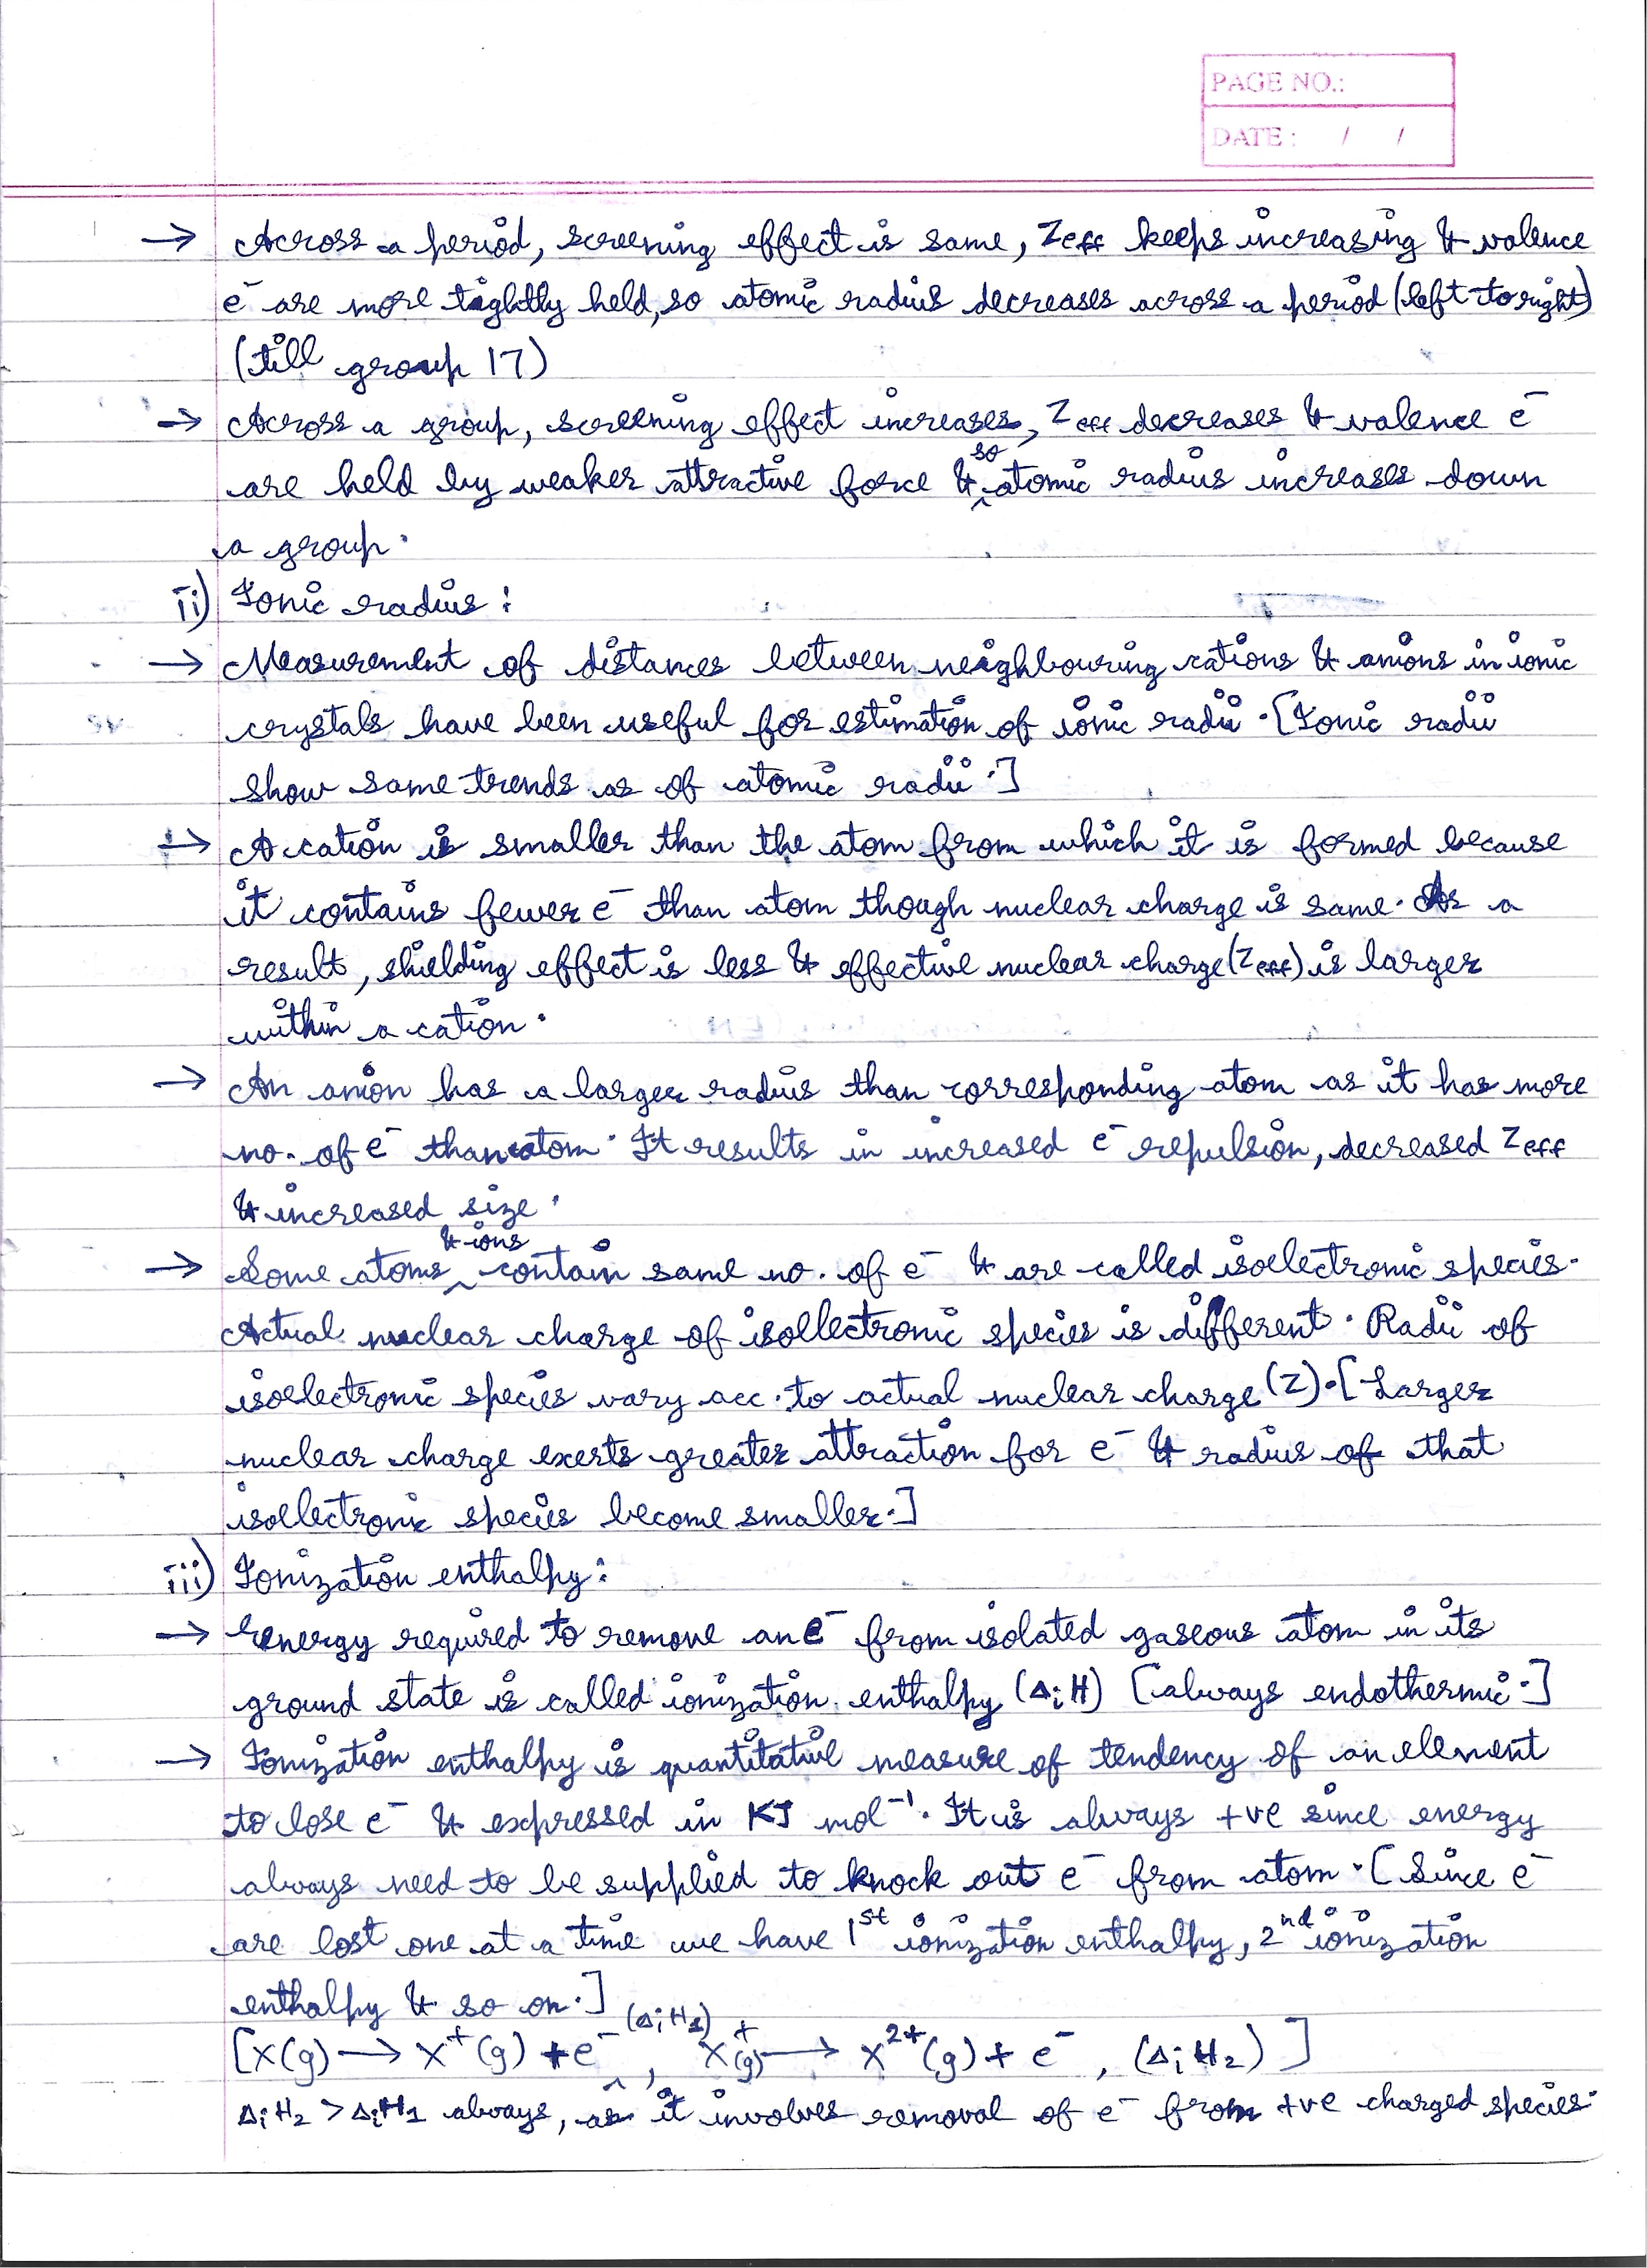 PAGE NO.:
DATE : / /
→ Across a period, screening effect is same, Zeff keeps increasing & valence
e⁻ are more tightly held, so atomic radius decreases across a period (left to right)
(till group 17)
→ Across a group, screening effect increases, Zeff decreases & valence e⁻
are held by weaker attractive force & so atomic radius increases down
a group.
ii) Ionic radius :
→ Measurement of distances between neighbouring cations & anions in ionic
crystals have been useful for estimation of ionic radii. [Ionic radii
show same trends as of atomic radii.]
→ A cation is smaller than the atom from which it is formed because
it contains fewer e⁻ than atom though nuclear charge is same. As a
result, shielding effect is less & effective nuclear charge (Zeff) is larger
within a cation.
→ An anion has a larger radius than corresponding atom as it has more
no. of e⁻ than atom. It results in increased e⁻ repulsion, decreased Zeff
& increased size.
→ Some atoms & ions contain same no. of e⁻ & are called isoelectronic species.
Actual nuclear charge of isollectronic species is different. Radii of
isoelectronic species vary acc. to actual nuclear charge (Z). [Larger
nuclear charge exerts greater attraction for e⁻ & radius of that
isollectronic species become smaller.]
iii) Ionization enthalpy :
→ Energy required to remove an e⁻ from isolated gaseous atom in its
ground state is called ionization enthalpy (ΔiH) [always endothermic.]
→ Ionization enthalpy is quantitative measure of tendency of an element
to lose e⁻ & expressed in KJ mol⁻¹. It is always +ve since energy
always need to be supplied to knock out e⁻ from atom. [Since e⁻
are lost one at a time we have 1st ionization enthalpy, 2nd ionization
enthalpy & so on.]
[X(g) → X⁺(g) + e⁻ (ΔiH1), X⁺(g) → X²⁺(g) + e⁻, (ΔiH2)]
ΔiH2 > ΔiH1 always, as it involves removal of e⁻ from +ve charged species.